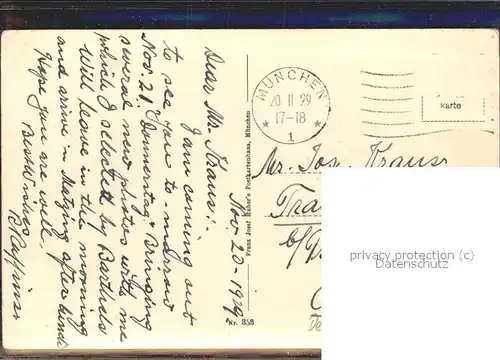 Dear Mr. Kraus:
I am coming out
to see you to-morrow
Nov. 21. Donnerstag & Bringing
several new photos with me
which I selected by Barthels
Will leave in the morning
and arrive in after
Hope you are well.
Best wishes
Nov. 20-1929
Nr. 353
Franz Josef Huber's Postkartenhaus, München
MÜNCHEN
20 11 29
17-18
1
karte
Mr. Jos. Kraus
Tra
privacy protection (C)
Datenschutz